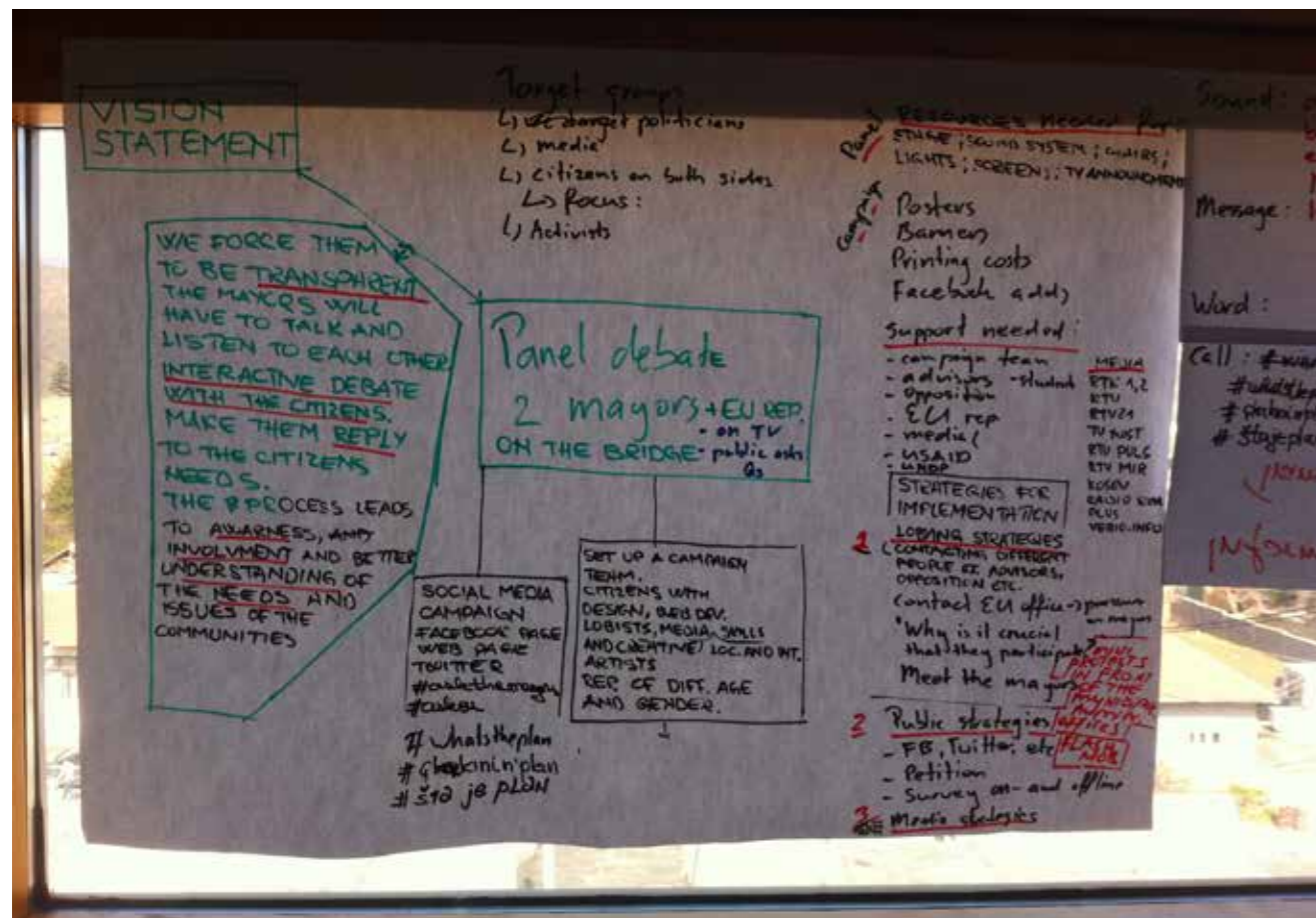 VISION
STATEMENT
WE FORCE THEM
TO BE TRANSPARENT
THE MAYORS WILL
HAVE TO TALK AND
LISTEN TO EACH OTHER
INTERACTIVE DEBATE
WITH THE CITIZENS.
MAKE THEM REPLY
TO THE CITIZENS
NEEDS.
THE PROCESS LEADS
TO AWARNESS, AND
INVOLVMENT AND BETTER
UNDERSTANDING OF
THE NEEDS AND
ISSUES OF THE
COMMUNITIES
Target groups
target politicians
media
citizens on both sides
Focus:
Activists
Panel debate
2 mayors + EU REP.
- on TV
ON THE BRIDGE - public asks
Qs
SOCIAL MEDIA
CAMPAIGN
FACEBOOK PAGE
WEB PAGE
TWITTER
# whatsthe plan
# šta je plan
SET UP A CAMPAIGN
TEAM.
CITIZENS WITH
DESIGN, WEB DEV.
LOBISTS, MEDIA, SKILLS
AND CREATIVE) LOC. AND INT.
ARTISTS
REP. OF DIFF. AGE
AND GENDER.
Panel
RESOURCES needed for:
STAGE; SOUND SYSTEM; CHAIRS;
LIGHTS; SCREEN; TV ANNOUNCMENT
Campaign
Posters
Banners
Printing costs
Facebook adds
Support needed:
- campaign team
- advisors - student
- opposition
- EU rep
- media
- USAID
- UNDP
MEDIA
RTK 1,2
KTV
RTV21
TV MOST
RTV PULS
RTV MIR
KOSSEV
PLUS
STRATEGIES FOR
IMPLEMENTATION
1 LOBYING STRATEGIES
(CONTACTING DIFFERENT
PEOPLE ADVISORS,
OPPOSITION ETC.
Contact EU office -> pressure
on mayors
"Why is it crucial
that they participate"
Meet the mayors
MINI
PROTESTS
IN FRONT
OF THE
MUNICIPAL
offices
FLASH
MOB
2 Public strategies
- FB, Twitter, etc
- Petition
- Survey on- and offline
3 Media strategies
Sound:
Message:
Word:
Call: